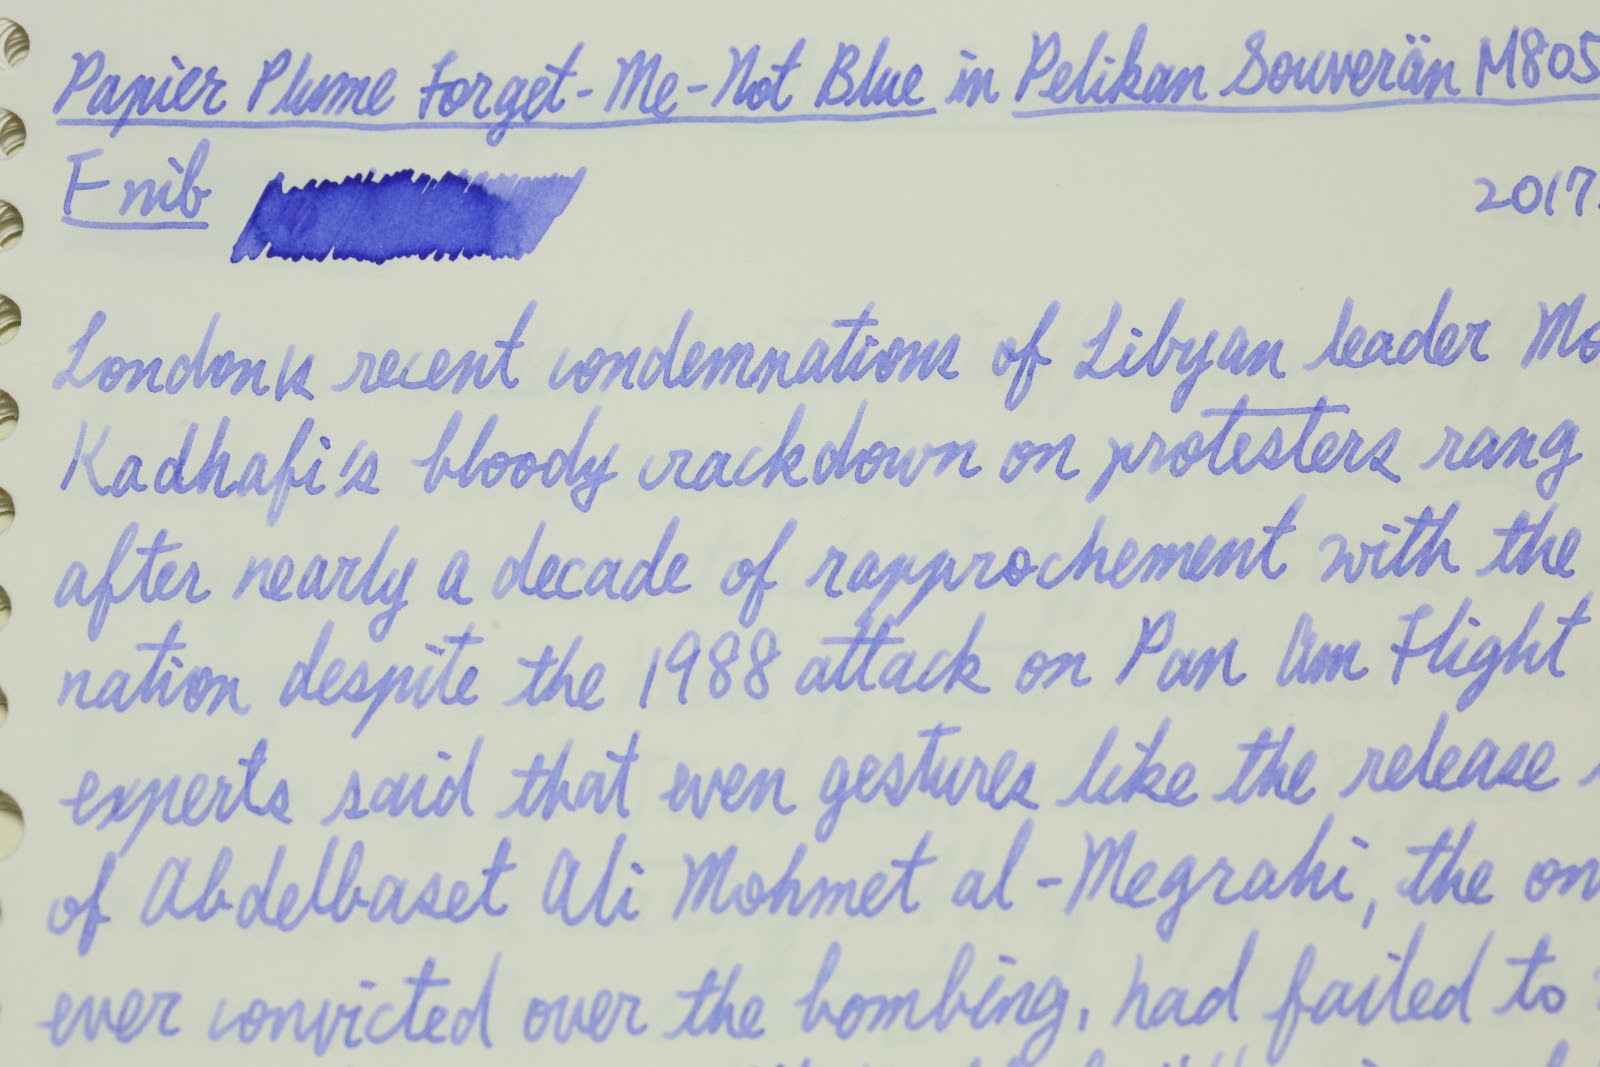 Papier Plume Forget-Me-Not Blue in Pelikan Souverän M805
F nib
2017.
London's recent condemnations of Libyan leader Mo
Kadhafi's bloody crackdown on protesters rang
after nearly a decade of rapprochement with the
nation despite the 1988 attack on Pan Am Flight
experts said that even gestures like the release
of Abdelbaset Ali Mohmet al-Megrahi, the on
ever convicted over the bombing, had failed to